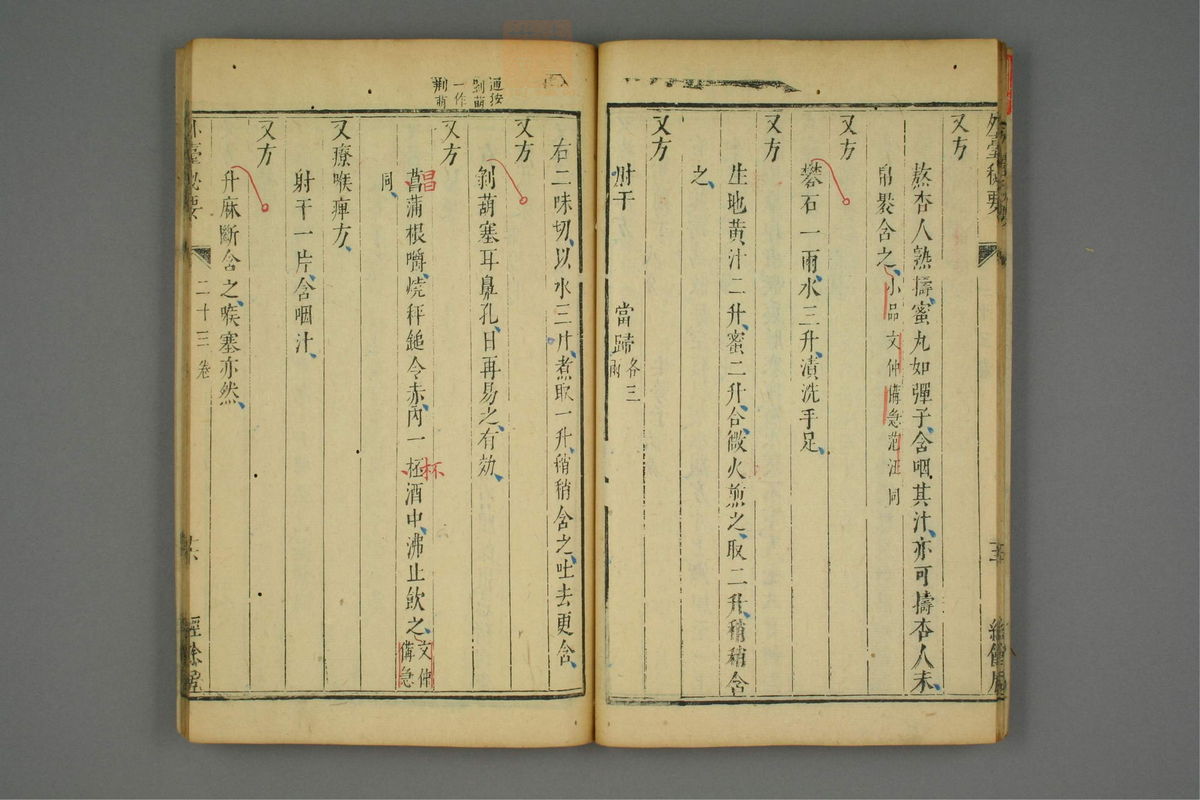 外臺秘要
又方
熬杏人熟擣蜜丸如彈子含咽其汁亦可擣杏人末
帛褁含之小品文仲備急范汪同
又方
礬石一兩水三升漬洗手足
又方
生地黃汁二升蜜二升合微火煎之取二升稍稍含
之
又方
射干 當歸各三兩
右二味切以水三升煮取一升稍稍含之吐去更含
又方
剝葫塞耳鼻孔日再易之有効
又方
菖蒲根嚼燒秤鎚令赤內一杯酒中沸止飲之文仲備急
同
又療喉痺方
射干一片含咽汁
又方
升麻斷含之喉塞亦然
外臺秘要 二十三卷 經餘居
一作
昌
杯